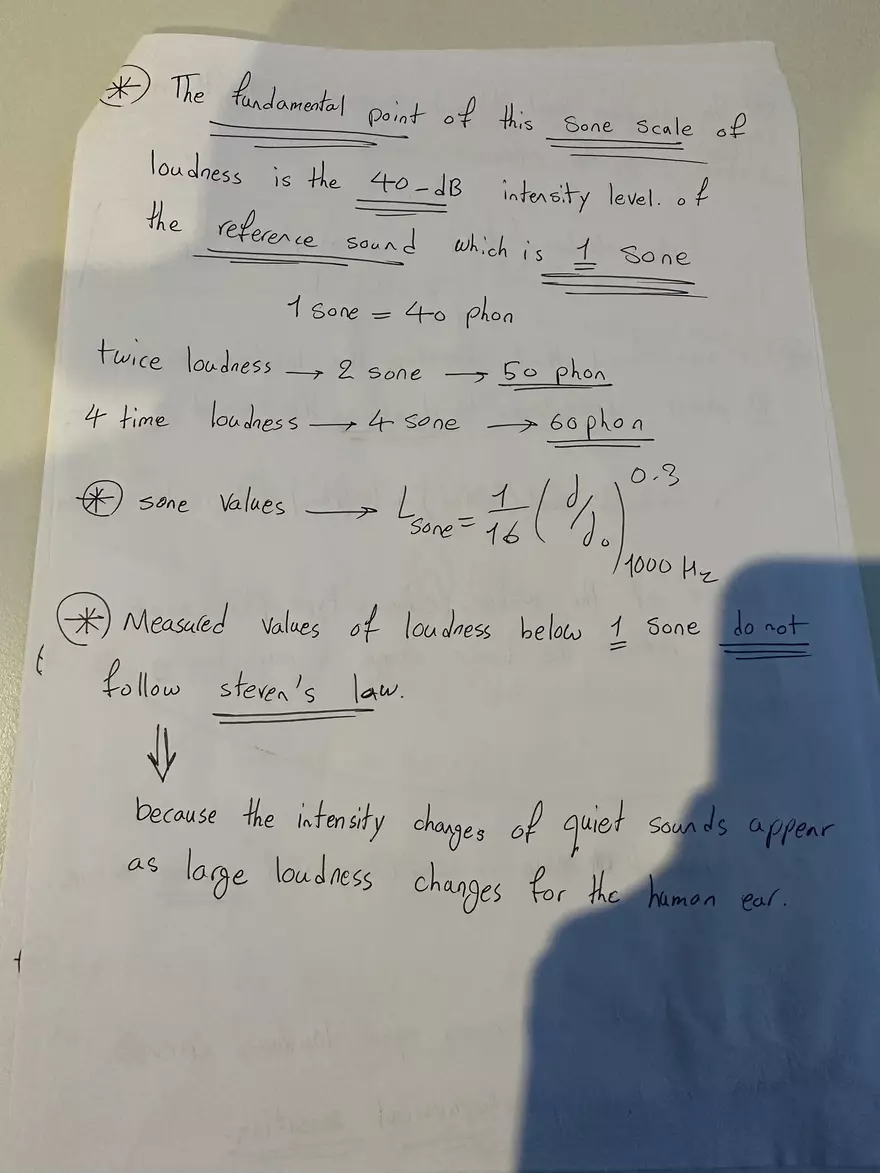 * The fundamental point of this sone scale of
loudness is the 40-dB intensity level. of
the reference sound which is 1 sone
1 sone = 40 phon
twice loudness → 2 sone → 50 phon
4 time loudness → 4 sone → 60 phon
* sone values → L_sone = 1/16 (J/J₀)^0.3 _1000 Hz
* Measured values of loudness below 1 sone do not
follow steven's law.
⇓
because the intensity changes of quiet sounds appear
as large loudness changes for the human ear.